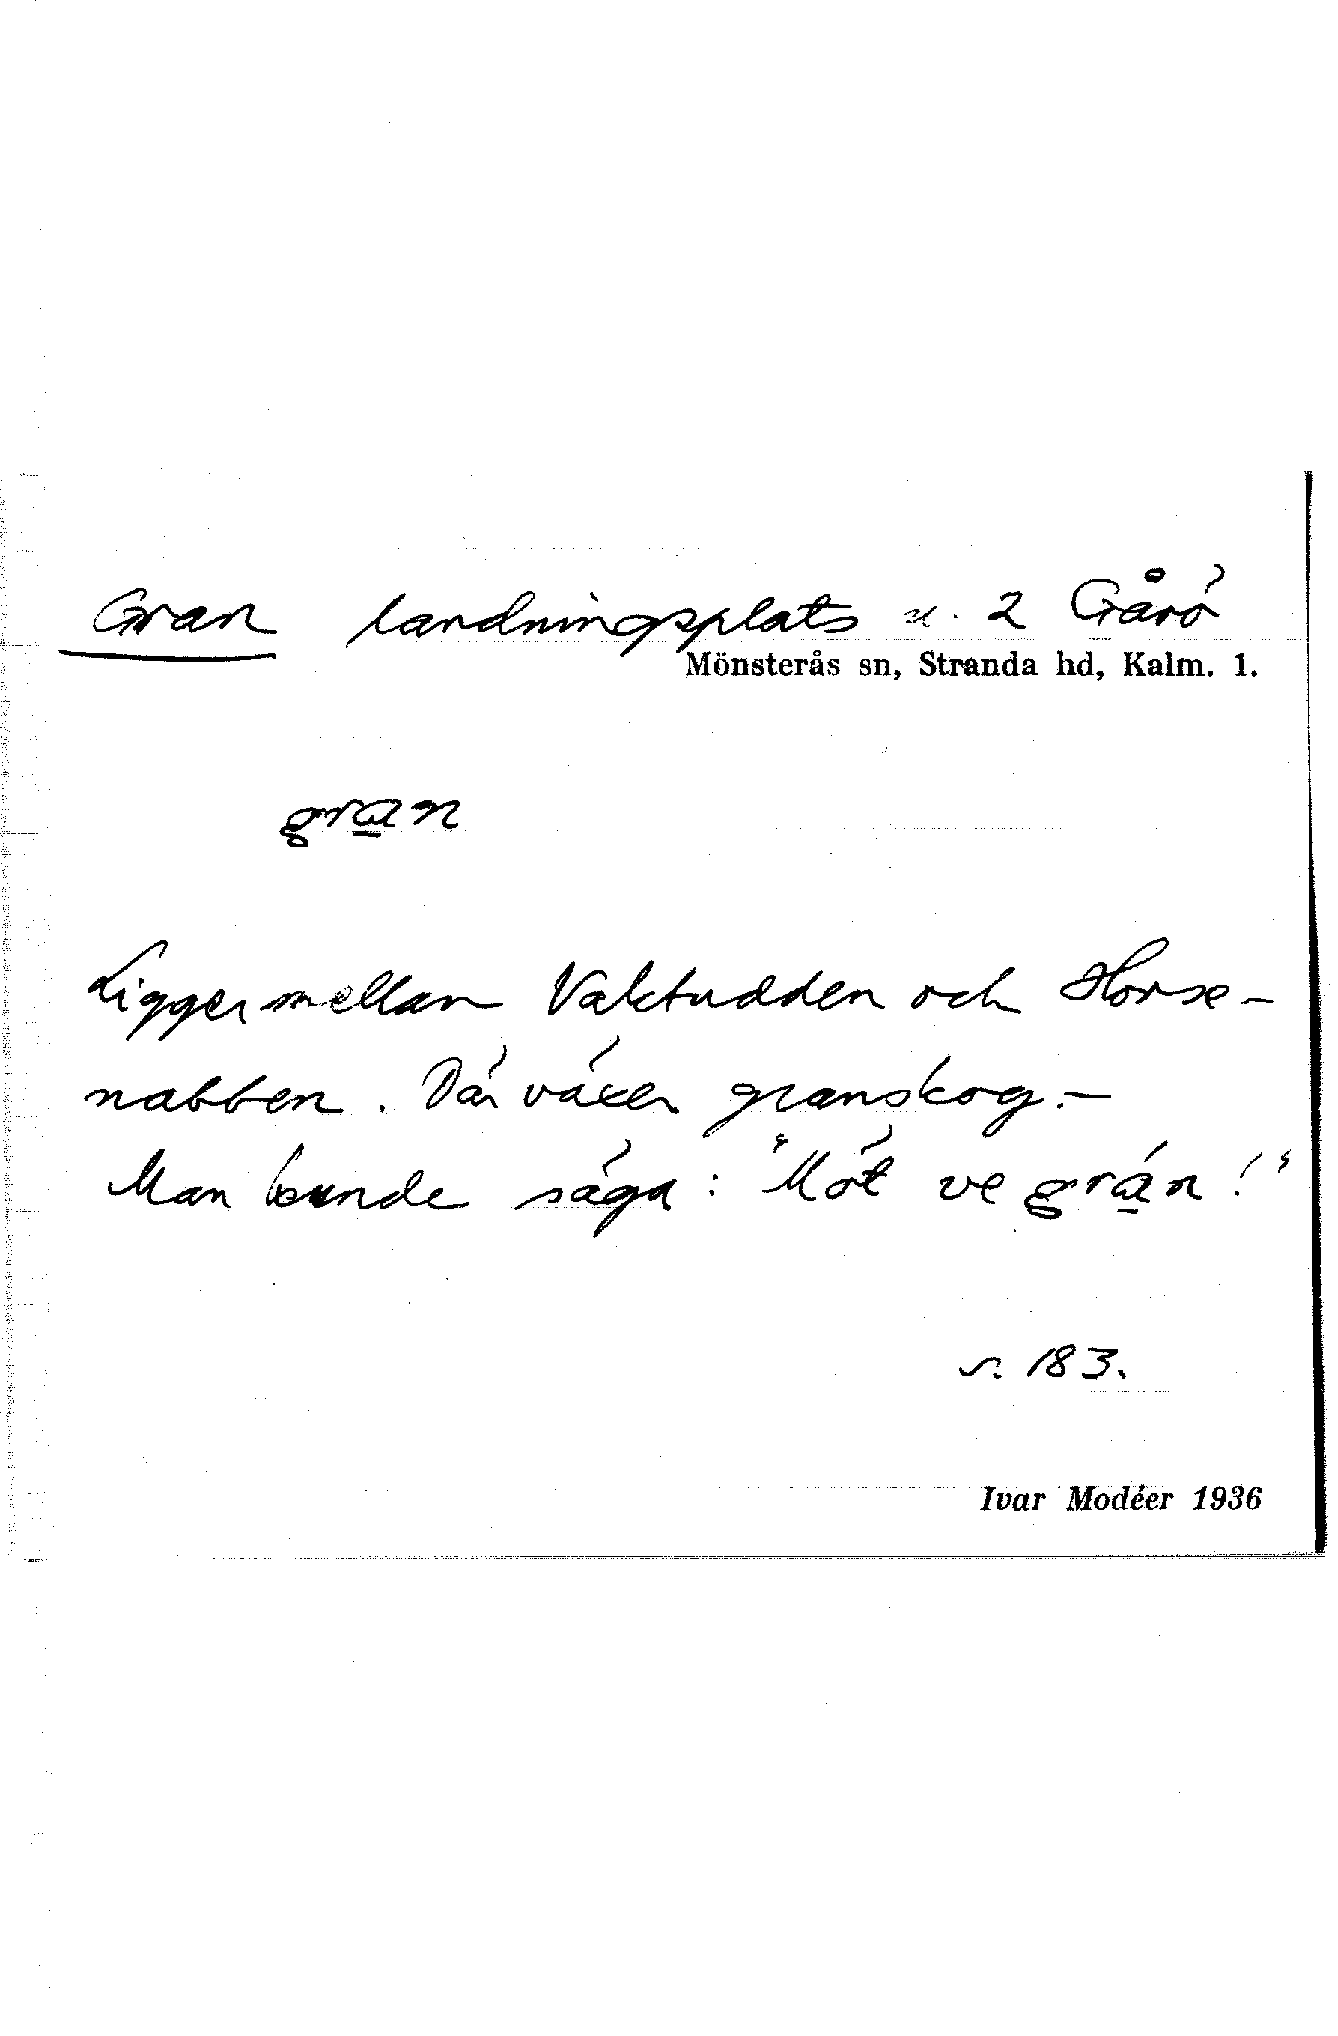 Gran landningsplats u. 2 Gårö
Mönsterås sn, Stranda hd, Kalm. 1.
gran
Ligger mellan Vaktudden och Horse-
nabben. Där växer granskog.-
Man kunde säga: "Möt ve grán!"
s. 183.
Ivar Modéer 1936